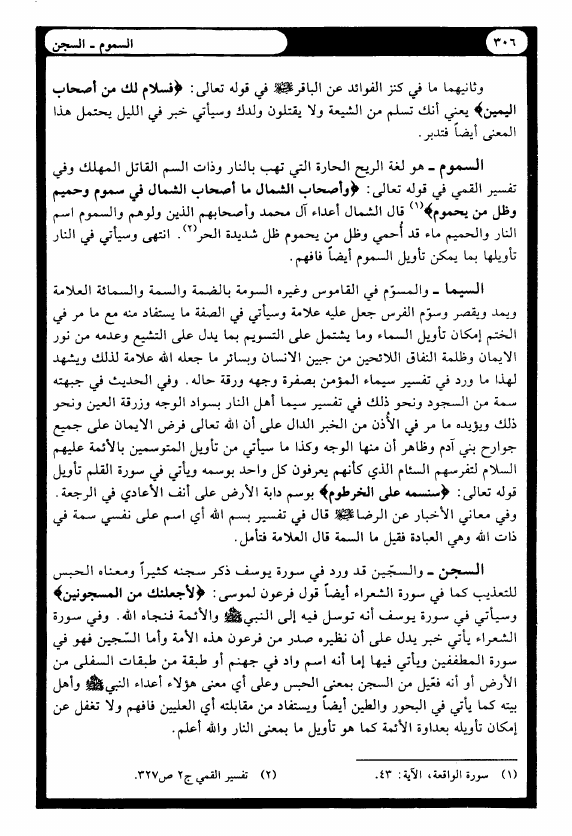 ٣٠٦
السموم ــ السجن
وثانيهما ما في كنز الفوائد عن الباقر ﷺ في قوله تعالى: ﴿فسلام لك من أصحاب
اليمين﴾ يعني أنك تسلم من الشيعة ولا يقتلون ولدك وسيأتي خبر في الليل يحتمل هذا
المعنى أيضاً فتدبر.
السموم ــ هو لغة الريح الحارة التي تهب بالنار وذات السم القاتل المهلك وفي
تفسير القمي في قوله تعالى: ﴿وأصحاب الشمال ما أصحاب الشمال في سموم وحميم
وظل من يحموم﴾(١) قال الشمال أعداء آل محمد وأصحابهم الذين ولوهم والسموم اسم
النار والحميم ماء قد أُحمي وظل من يحموم ظل شديدة الحر(٢). انتهى وسيأتي في النار
تأويلها بما يمكن تأويل السموم أيضاً فافهم.
السيما ــ والمسوّم في القاموس وغيره السومة بالضمة والسمة والسمائة العلامة
ويمد ويقصر وسوّم الفرس جعل عليه علامة وسيأتي في الصفة ما يستفاد منه مع ما مر في
الختم إمكان تأويل السماء وما يشتمل على التسويم بما يدل على التشيع وعدمه من نور
الايمان وظلمة النفاق اللائحين من جبين الانسان وبسائر ما جعله الله علامة لذلك ويشهد
لهذا ما ورد في تفسير سيماء المؤمن بصفرة وجهه ورقة حاله. وفي الحديث في جبهته
سمة من السجود ونحو ذلك في تفسير سيما أهل النار بسواد الوجه وزرقة العين ونحو
ذلك ويؤيده ما مر في الأُذن من الخبر الدال على أن الله تعالى فرض الايمان على جميع
جوارح بني آدم وظاهر أن منها الوجه وكذا ما سيأتي من تأويل المتوسمين بالأئمة عليهم
السلام لتفرسهم السئام الذي كأنهم يعرفون كل واحد بوسمه ويأتي في سورة القلم تأويل
قوله تعالى: ﴿سنسمه على الخرطوم﴾ بوسم دابة الأرض على أنف الأعادي في الرجعة.
وفي معاني الأخبار عن الرضا ﷺ قال في تفسير بسم الله أي اسم على نفسي سمة في
ذات الله وهي العبادة فقيل ما السمة قال العلامة فتأمل.
السجن ــ والسجّين قد ورد في سورة يوسف ذكر سجنه كثيراً ومعناه الحبس
للتعذيب كما في سورة الشعراء أيضاً قول فرعون لموسى: ﴿لأجعلنك من المسجونين﴾
وسيأتي في سورة يوسف أنه توسل فيه إلى النبي ﷺ والأئمة فنجاه الله. وفي سورة
الشعراء يأتي خبر يدل على أن نظيره صدر من فرعون هذه الأمة وأما السّجين فهو في
سورة المطففين ويأتي فيها إما أنه اسم واد في جهنم أو طبقة من طبقات السفلى من
الأرض أو أنه فعّيل من السجن بمعنى الحبس وعلى أي معنى هؤلاء أعداء النبي ﷺ وأهل
بيته كما يأتي في البحور والطين أيضاً ويستفاد من مقابلته أي العليين فافهم ولا تغفل عن
إمكان تأويله بعداوة الأئمة كما هو تأويل ما بمعنى النار والله أعلم.
(١) سورة الواقعة، الآية: ٤٣.
(٢) تفسير القمي ج٢ ص٣٢٧.